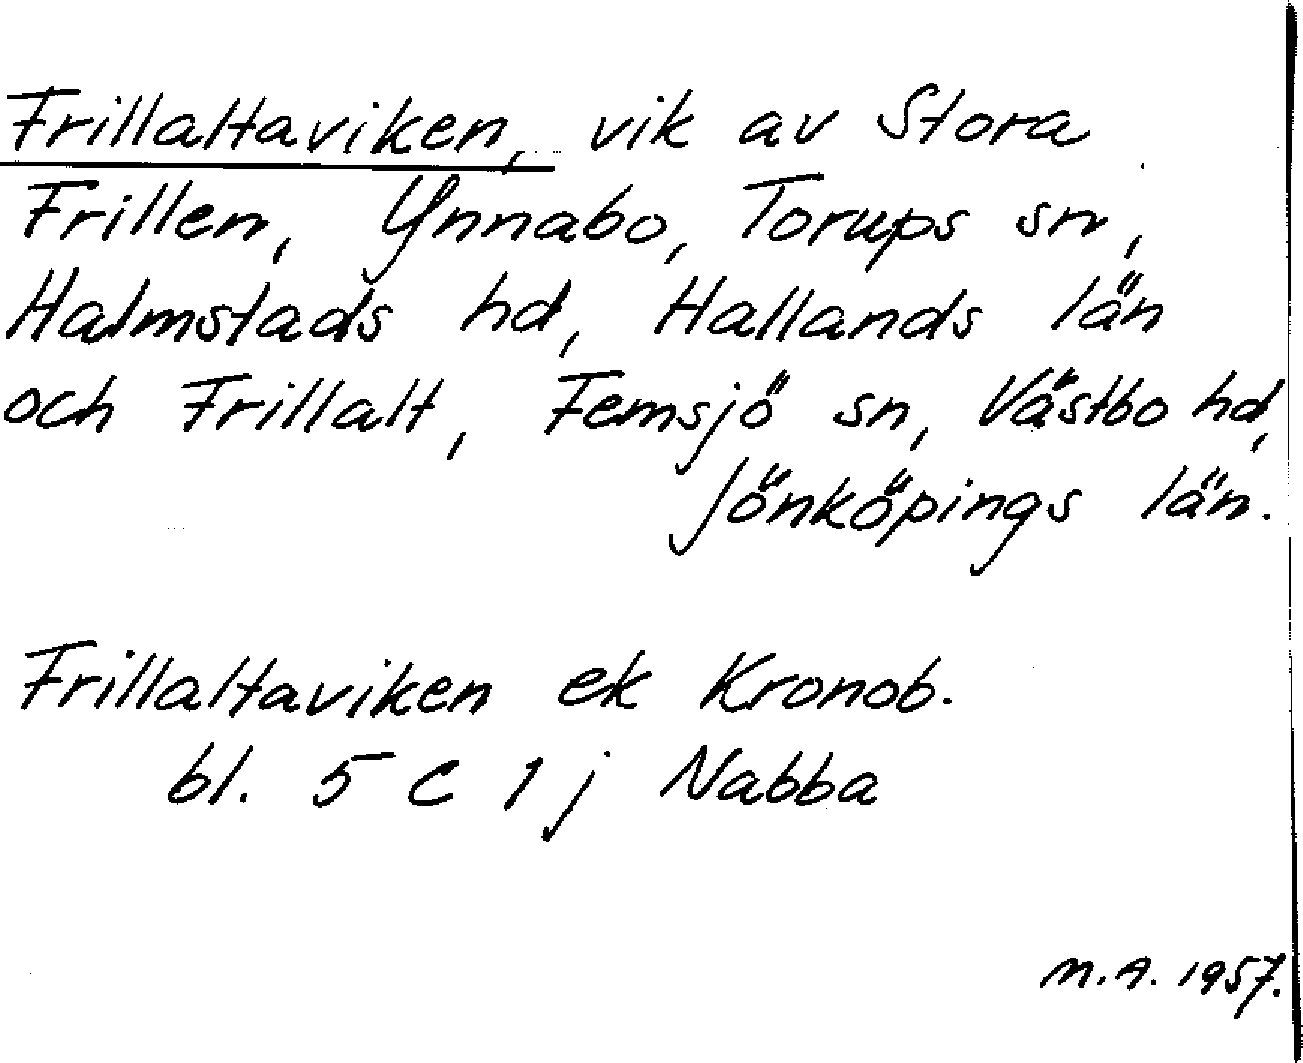 Frillaltaviken, vik av Stora
Frillen, Ynnabo, Torups sn,
Halmstads hd, Hallands län
och Frillalt, Femsjö sn, Västbo hd,
Jönköpings län.
Frillaltaviken ek Kronob.
bl. 5 C 1 j Nabba
M.A. 1957.